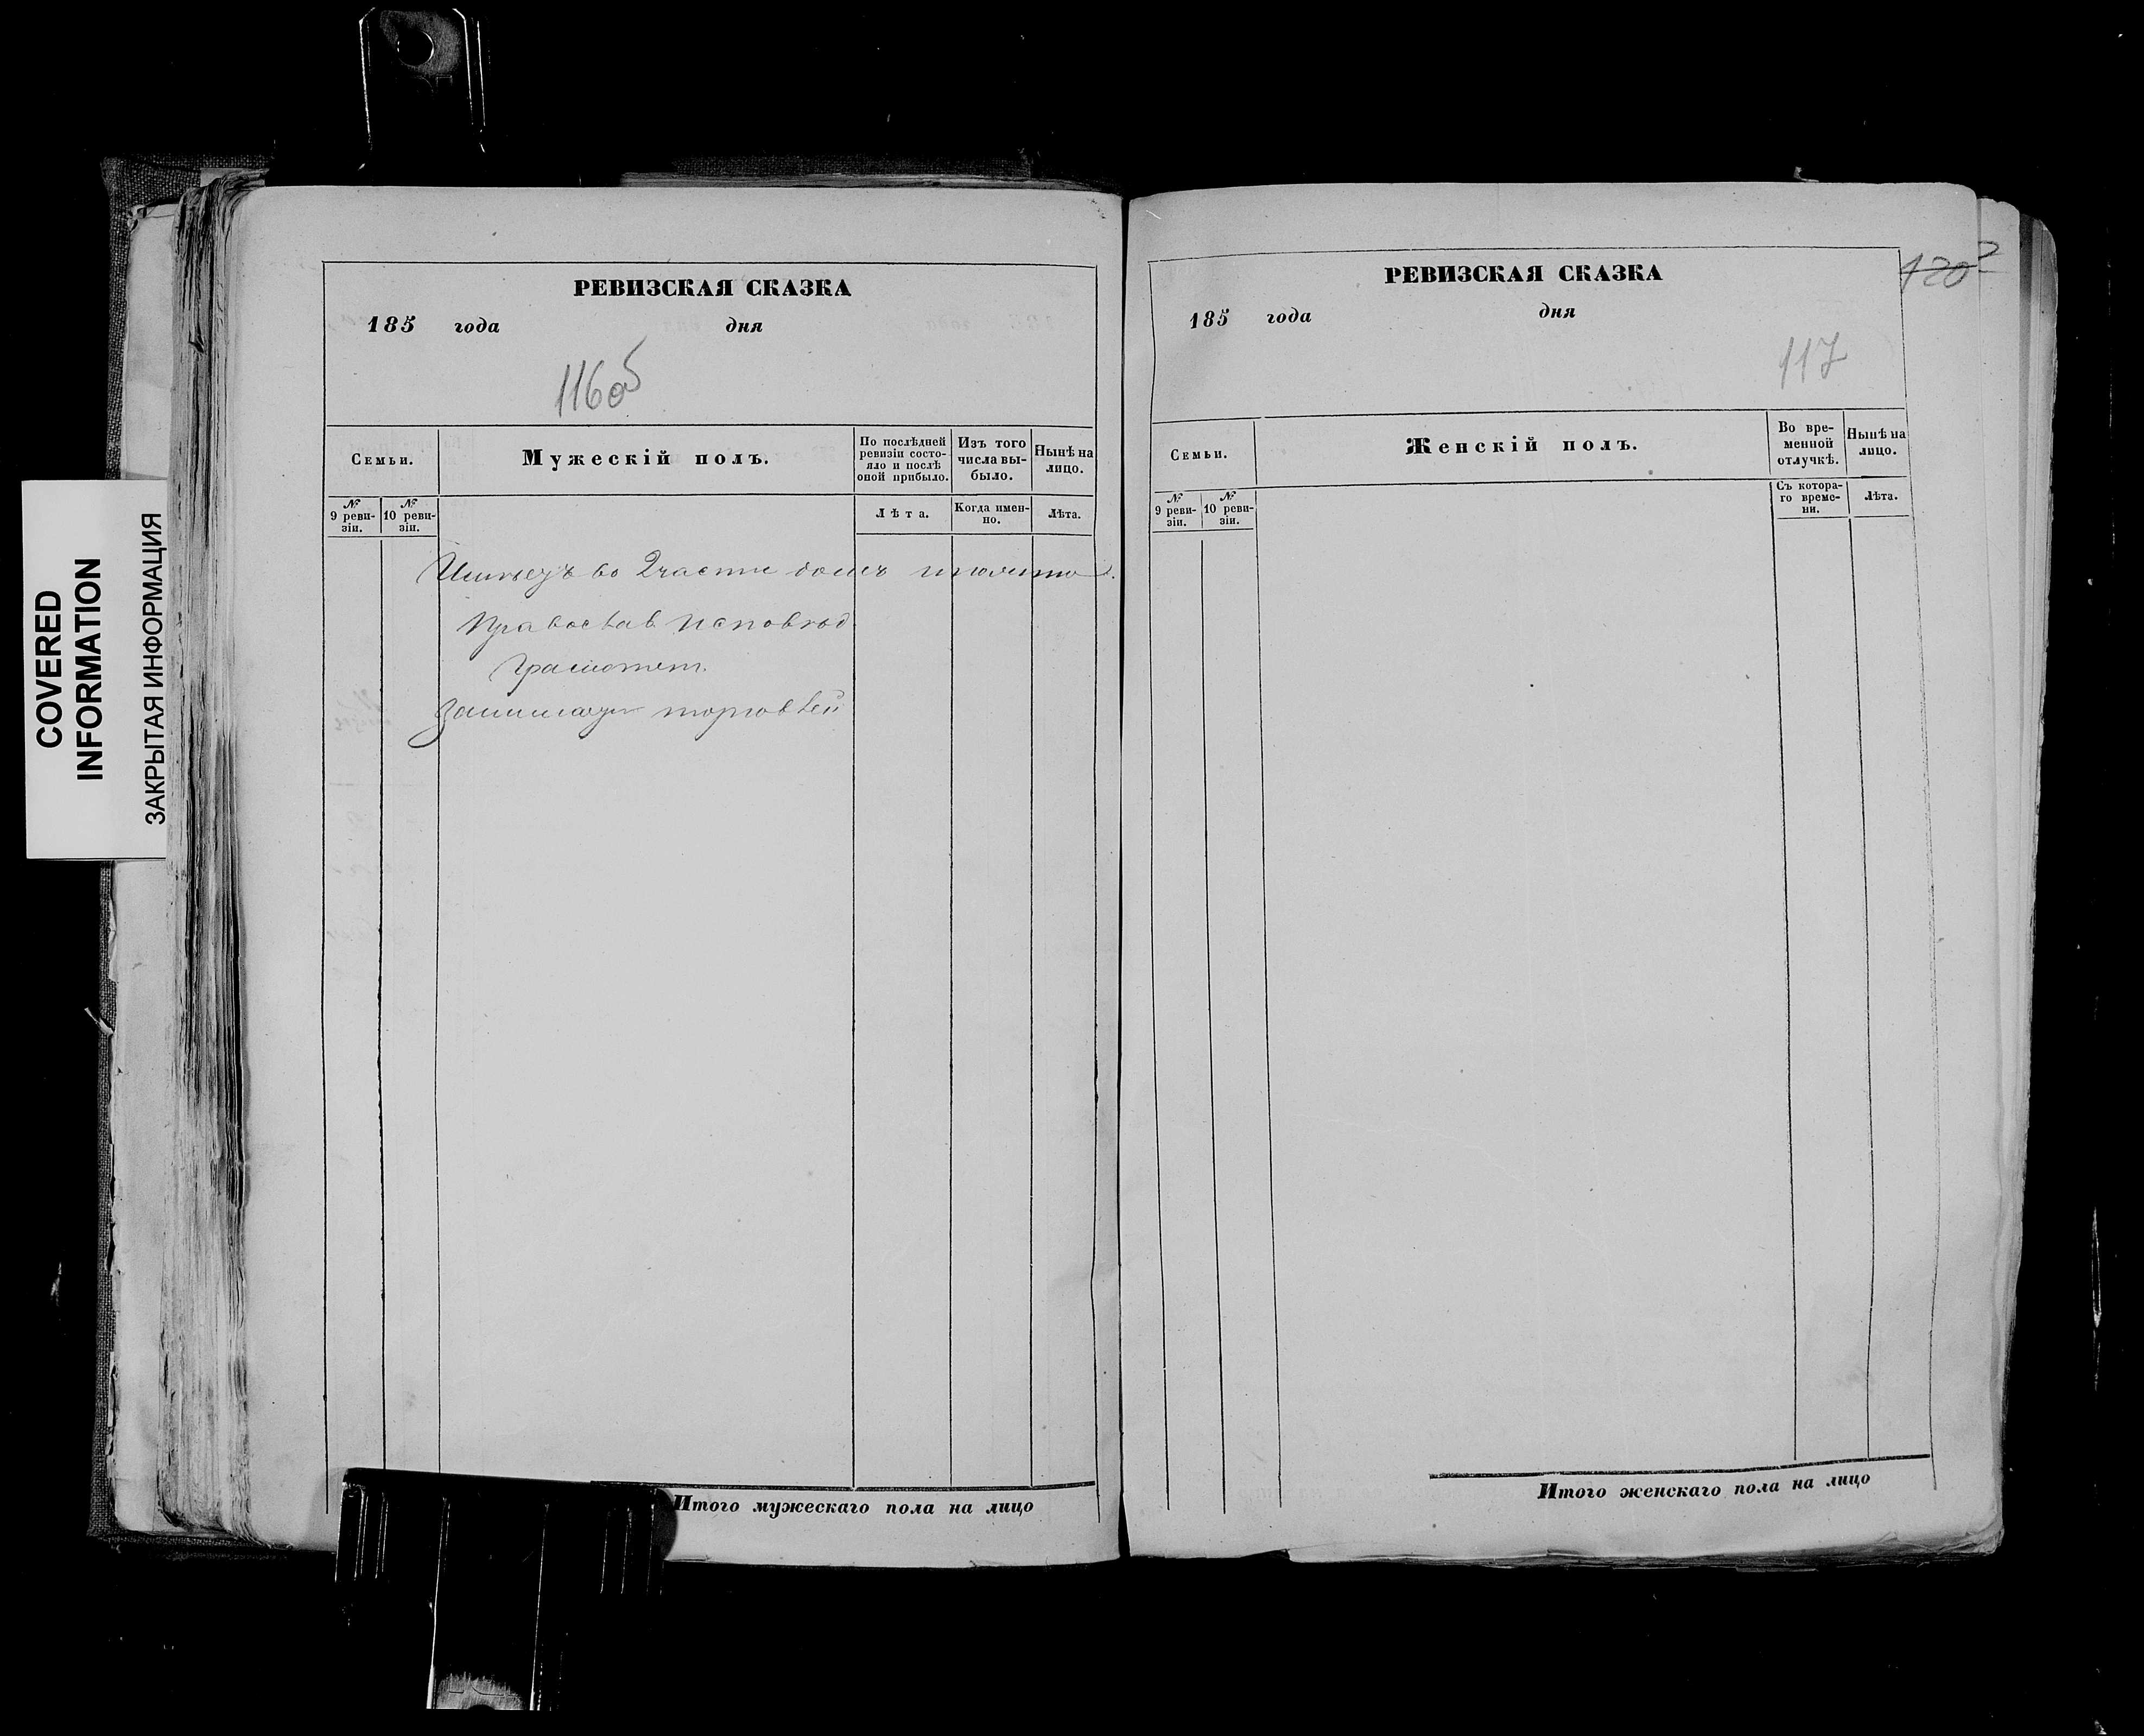 COVERED
INFORMATION
ЗАКРЫТАЯ ИНФОРМАЦИЯ
РЕВИЗСКАЯ СКАЗКА
185 года дня
116об
Семьи.
Мужескій полъ.
По послѣдней
ревизіи состо-
яло и послѣ
оной прибыло.
Изъ того
числа вы-
было.
Нынѣ на
лицо.
№
9 реви-
зіи.
№
10 реви-
зіи.
Лѣта.
Когда имен-
но.
Лѣта.
во 2 части домъ
Православ. исповѣд.
грамотен.
торговлей
Итого мужескаго пола на лицо
120
РЕВИЗСКАЯ СКАЗКА
185 года дня
117
Семьи.
Женскій полъ.
Во вре-
менной
отлучкѣ.
Нынѣ на
лицо.
№
9 реви-
зіи.
№
10 реви-
зіи.
Съ котора-
го време-
ни.
Лѣта.
Итого женскаго пола на лицо